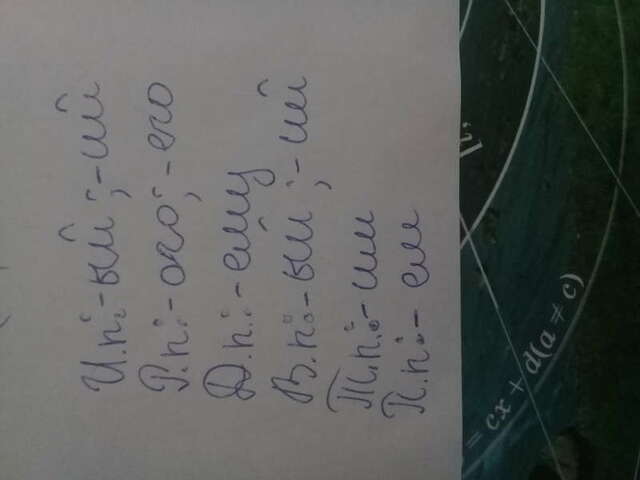 И.п.: -ый ; -ий
Р.п.: - ого; - его
Д.п.: - ему
В.п.: - ый ; - ий
Т.п.: - им
П.п.: - ем
= cx + d(a ≠ c)